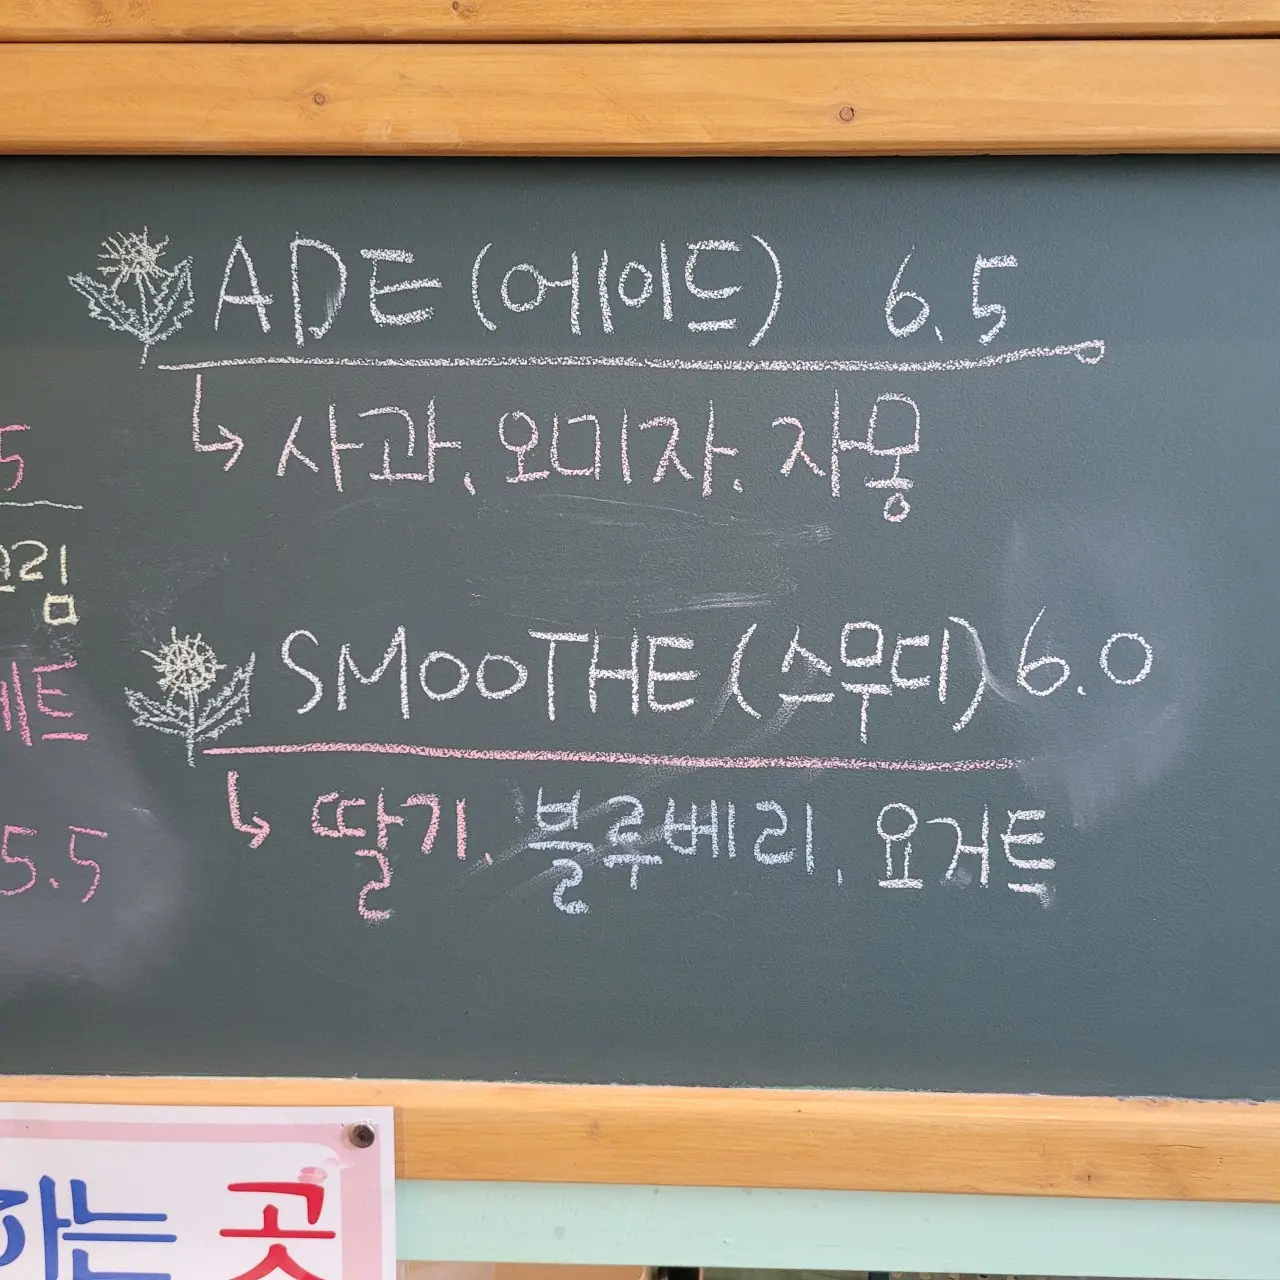 ADE (에이드) 6.5
사과, 오미자, 자몽
SMOOTHE (스무디) 6.0
딸기, 블루베리, 요거트
5
5.5
하는 곳